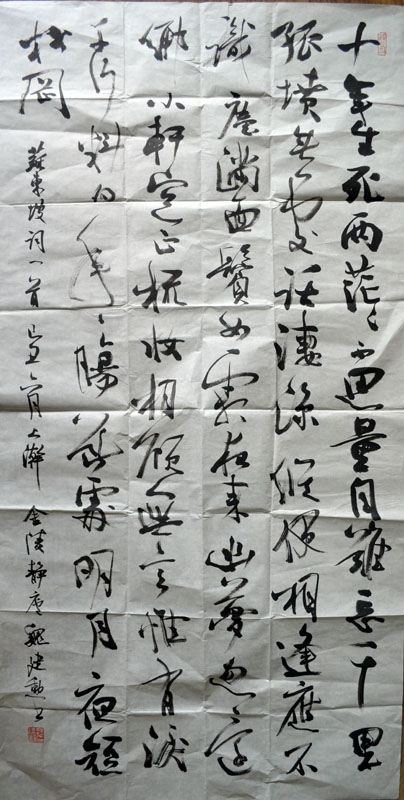 十年生死两茫茫不思量自難忘千里
孤墳無處話淒涼縱使相逢應不
識塵滿面鬢如霜夜來幽夢忽還
鄉小軒窗正梳妝相顧無言惟有淚
千行料得年年腸斷處明月夜短
松岡
蘇東坡詞一首 己丑六月上澣 静庵魏建勳书